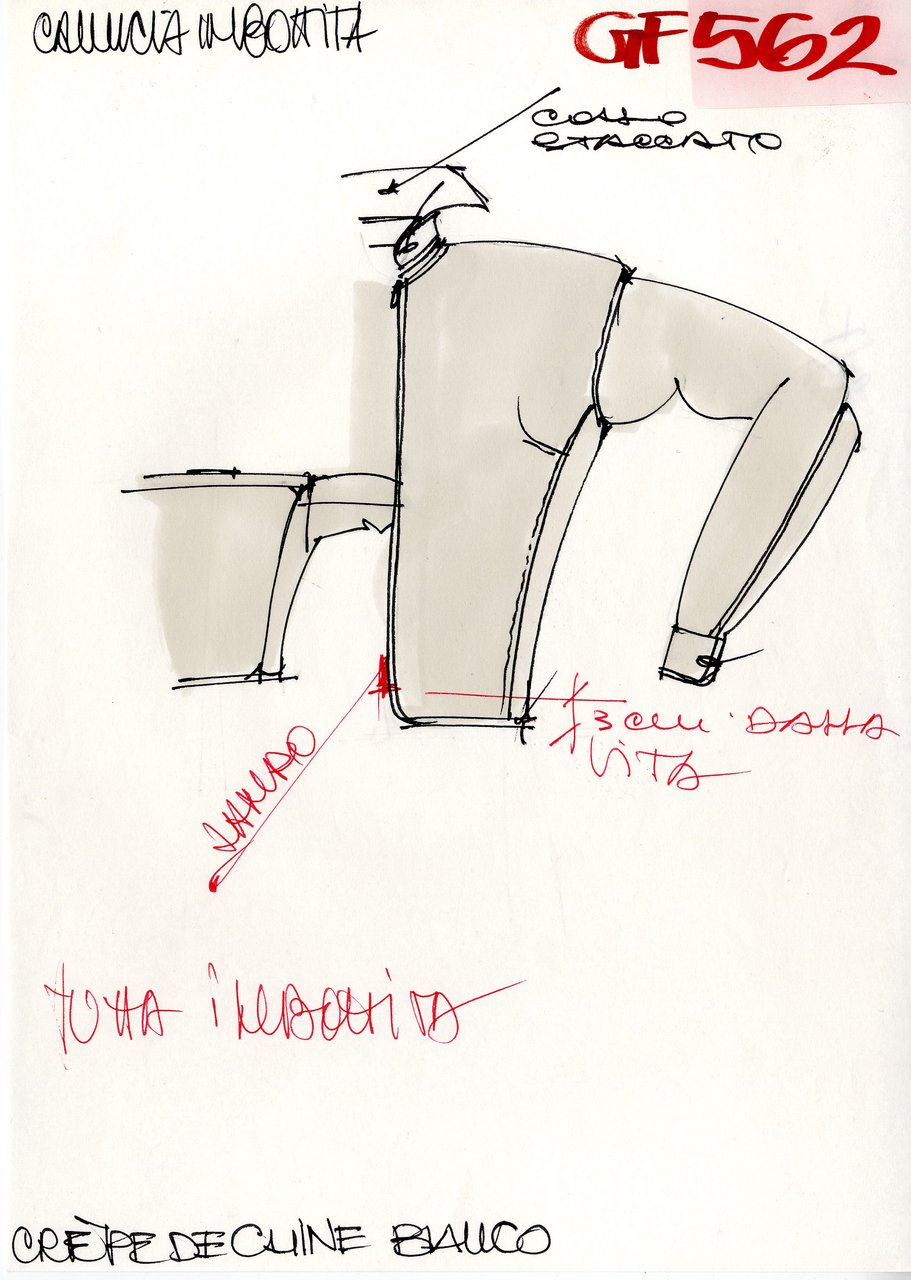 CAMICIA IMBOTTITA
GF562
COLLO
STACCATO
3 cm DALLA
VITA
tutta imbottita
CRÈPE DE CHINE BIANCO